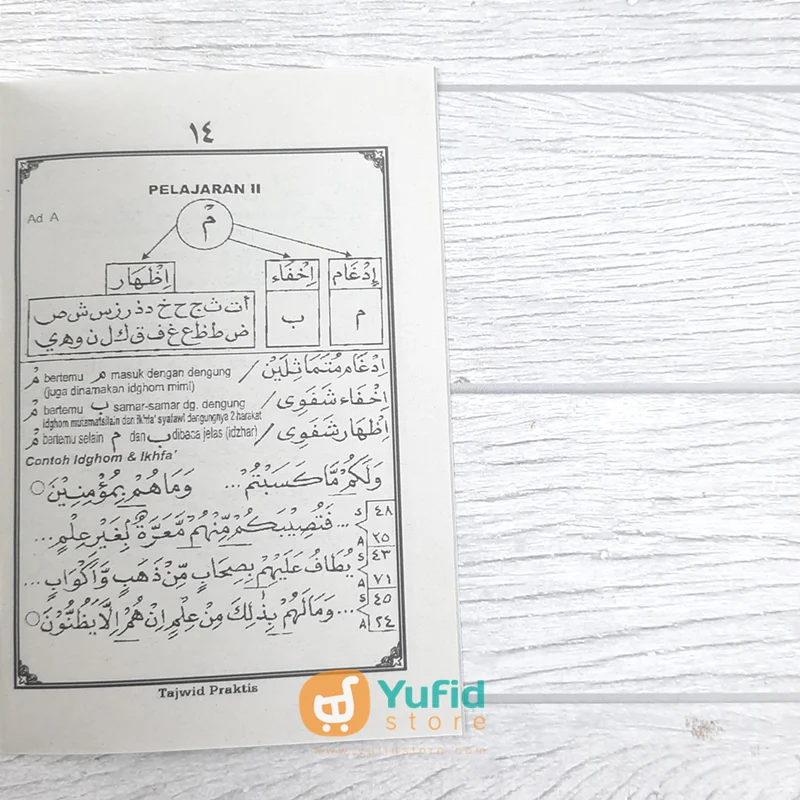 ١٤
PELAJARAN II
Ad A
مْ
إِدْغَام اِخْفَاء اِظْهَار
م ب أ ت ث ج ح خ د ذ ر ز س ش ص
ض ط ظ ع غ ف ق ك ل ن و ه ي
مْ bertemu م masuk dengan dengung / اِدْغَام مُتَمَاثِلَيْن
(juga dinamakan idghom mimi)
مْ bertemu ب samar-samar dg. dengung / اِخْفَاء شَفَوِى
Idghom mutamatsilain dan ikhfa' syafawi dengungnya 2 harakat
مْ bertemu selain م dan ب dibaca jelas (idzhar) / اِظْهَار شَفَوِى
Contoh Idghom & Ikhfa'
وَلَكُمْ مَّا كَسَبْتُمْ ... وَمَا هُمْ بِمُؤْمِنِيْنَ ○
٤٨ S ٢٥ A ... فَتُصِيْبَكُمْ مِّنْهُمْ مَّعَرَّةٌۢ بِغَيْرِ عِلْمٍ ...
٤٣ S ٧١ A يُطَافُ عَلَيْهِمْ بِصِحَافٍ مِّنْ ذَهَبٍ وَّأَكْوَابٍ ...
٤٥ S ٢٤ A ... وَمَا لَهُمْ بِذٰلِكَ مِنْ عِلْمٍ اِنْ هُمْ اِلَّا يَظُنُّوْنَ ○
Tajwid Praktis
Yufid
store
www.yufidstore.com